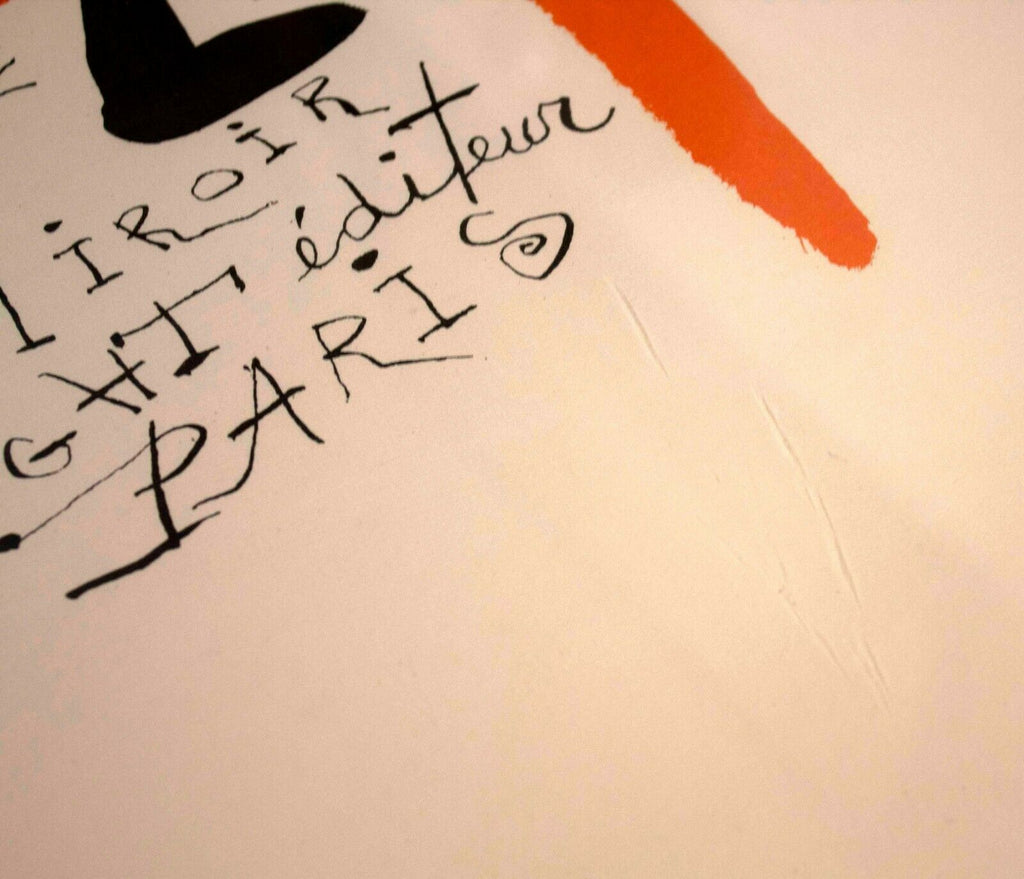 IROIR
GHT éditeur
PARIS